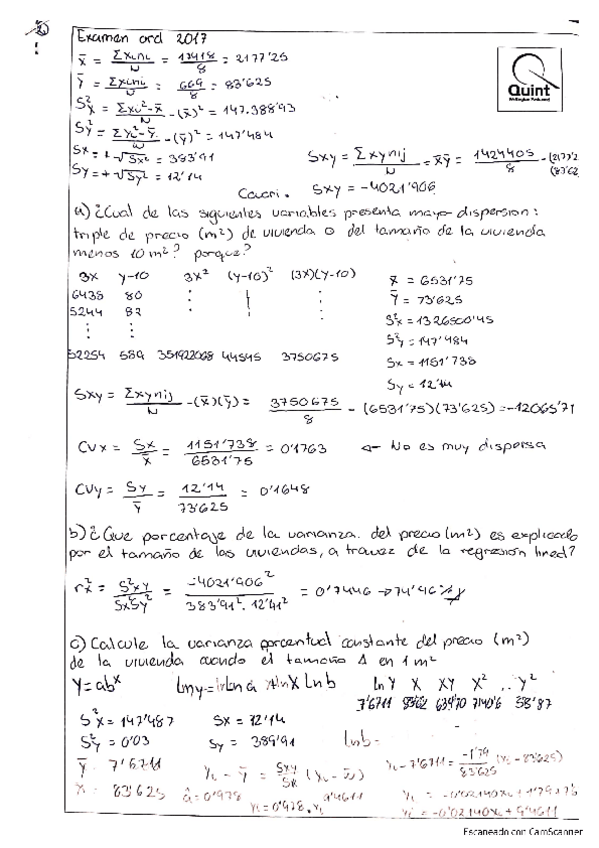 Examen ord 2017
x̄ = Σxini/N = 17418/8 = 2177'25
ȳ = Σxini/N = 669/8 = 83'625
S²x = Σxi²-x̄/N -(x̄)² = 147.388'93
Sy² = Σxi²-ȳ/N -(ȳ)² = 147'484
Sx = +√Sx² = 383'91
Sy = +√Sy² = 12'14
Quint
Sxy = Σxynij/N = x̄ȳ = 1424405/8 -(2177'2
(83'62
Covari. Sxy = -4021'906
a) ¿Cual de las siguientes variables presenta mayo dispersion:
triple de precio (m²) de vivienda o del tamaño de la vivienda
menos 10 m²? porque?
3x y-10 3x² (y-10)² (3x)(y-10)
6435 80
5244 82
52254 589 351922068 44545 3750675
x̄ = 6531'75
ȳ = 73'625
S²x = 1326500'45
S²y = 147'484
Sx = 1151'738
Sy = 12'14
Sxy = Σxynij/N -(x̄)(ȳ) = 3750675/8 - (6531'75)(73'625) = -12065'71
CVx = Sx/x̄ = 1151'738/6531'75 = 0'1763 <- No es muy dispersa
CVy = Sy/ȳ = 12'14/73'625 = 0'1648
b) ¿Que porcentaje de la varianza. del precio (m²) es explicado
por el tamaño de las viviendas, a travez de la regresión lineal?
= -4021'906²/383'91². 12'41² = 0'7446 → 74'46%
c) Calcule la varianza porcentual constante del precio (m²)
de la vivienda cuando el tamaño Δ en 1 m²
Y = abˣ ln b ln Y X XY X² .. Y²
7'6711
S²x = 147'487 Sx = 12'14
S²y = 0'03 Sy = 389'91 ln b =
ȳ = 7'6711 yi - ȳ = Sxy/Sx (xi - x̄) yi - 7'6711 = -1'79/83'625 (xi - 83'625)
x̄ = 83'625 â = 0'978
= -0'02140x + 9'4611
Escaneado con CamScanner